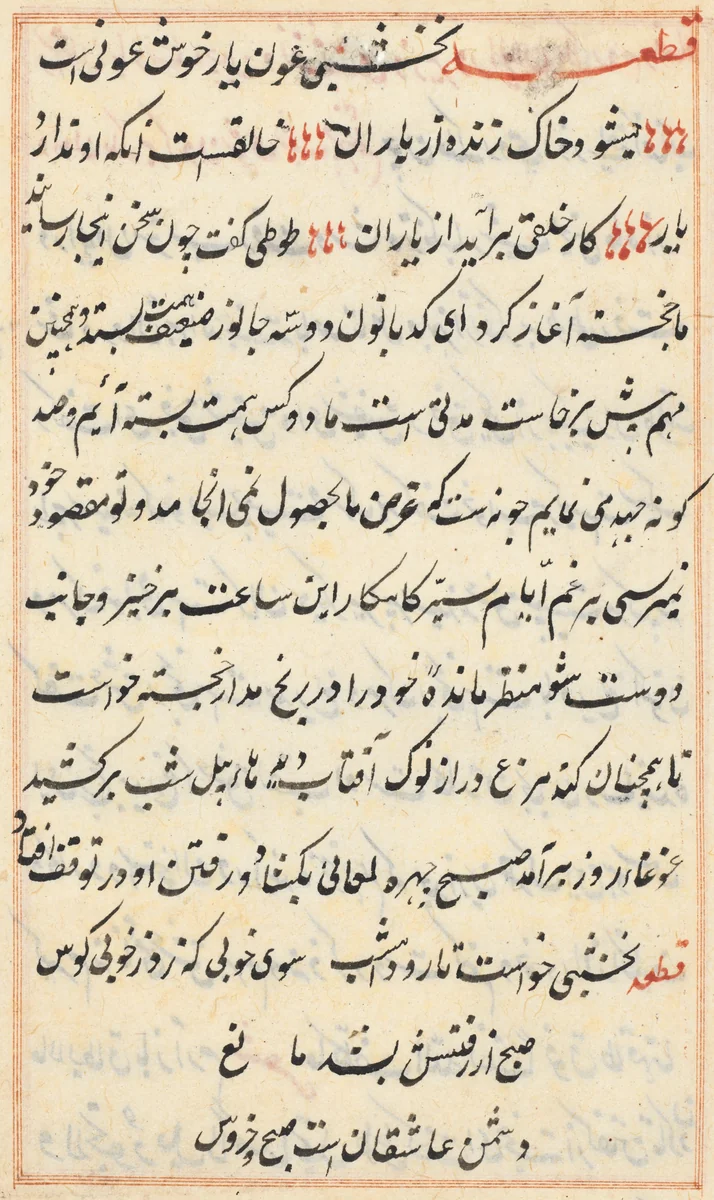 قطعه نخشبی عون یار خوش عونی است
میشود خاک زنده از یاران خالقست آنکه او ندارد
یار کار خلقی برآید از یاران طوطی گفت چون سخن اینجا رسانید
ماخجسته آغاز کرد ای کدبانو چون دو سه جانور ضعیف همت بستند و همچنین
مهم پیش برخاست مدتی است ما دو کس همت بسته آئیم و صد
گونه جهد می نمایم چونست که غرض ما بحصول نمی انجامد و تو مقصود خود
نمیرسی برغم ایام سیر کامکار این ساعت برخیز و جانب
دوست شو منتظر مانده خود را در رنج مدار خجسته خواست
تا همچنان کند مرغ دراز نوک آفتاب ماء پیل شب برکشید
غوغاء روز برآمد صبح چهره لمعانی بکشاد و رفتن او در توقف افتاد
قطعه نخشبی خواست تا رود امشب سوی خوبی که زد ز خوبی کوس
صبح از رفتنش بشد مانع
دشمن عاشقان است صبح و خروس